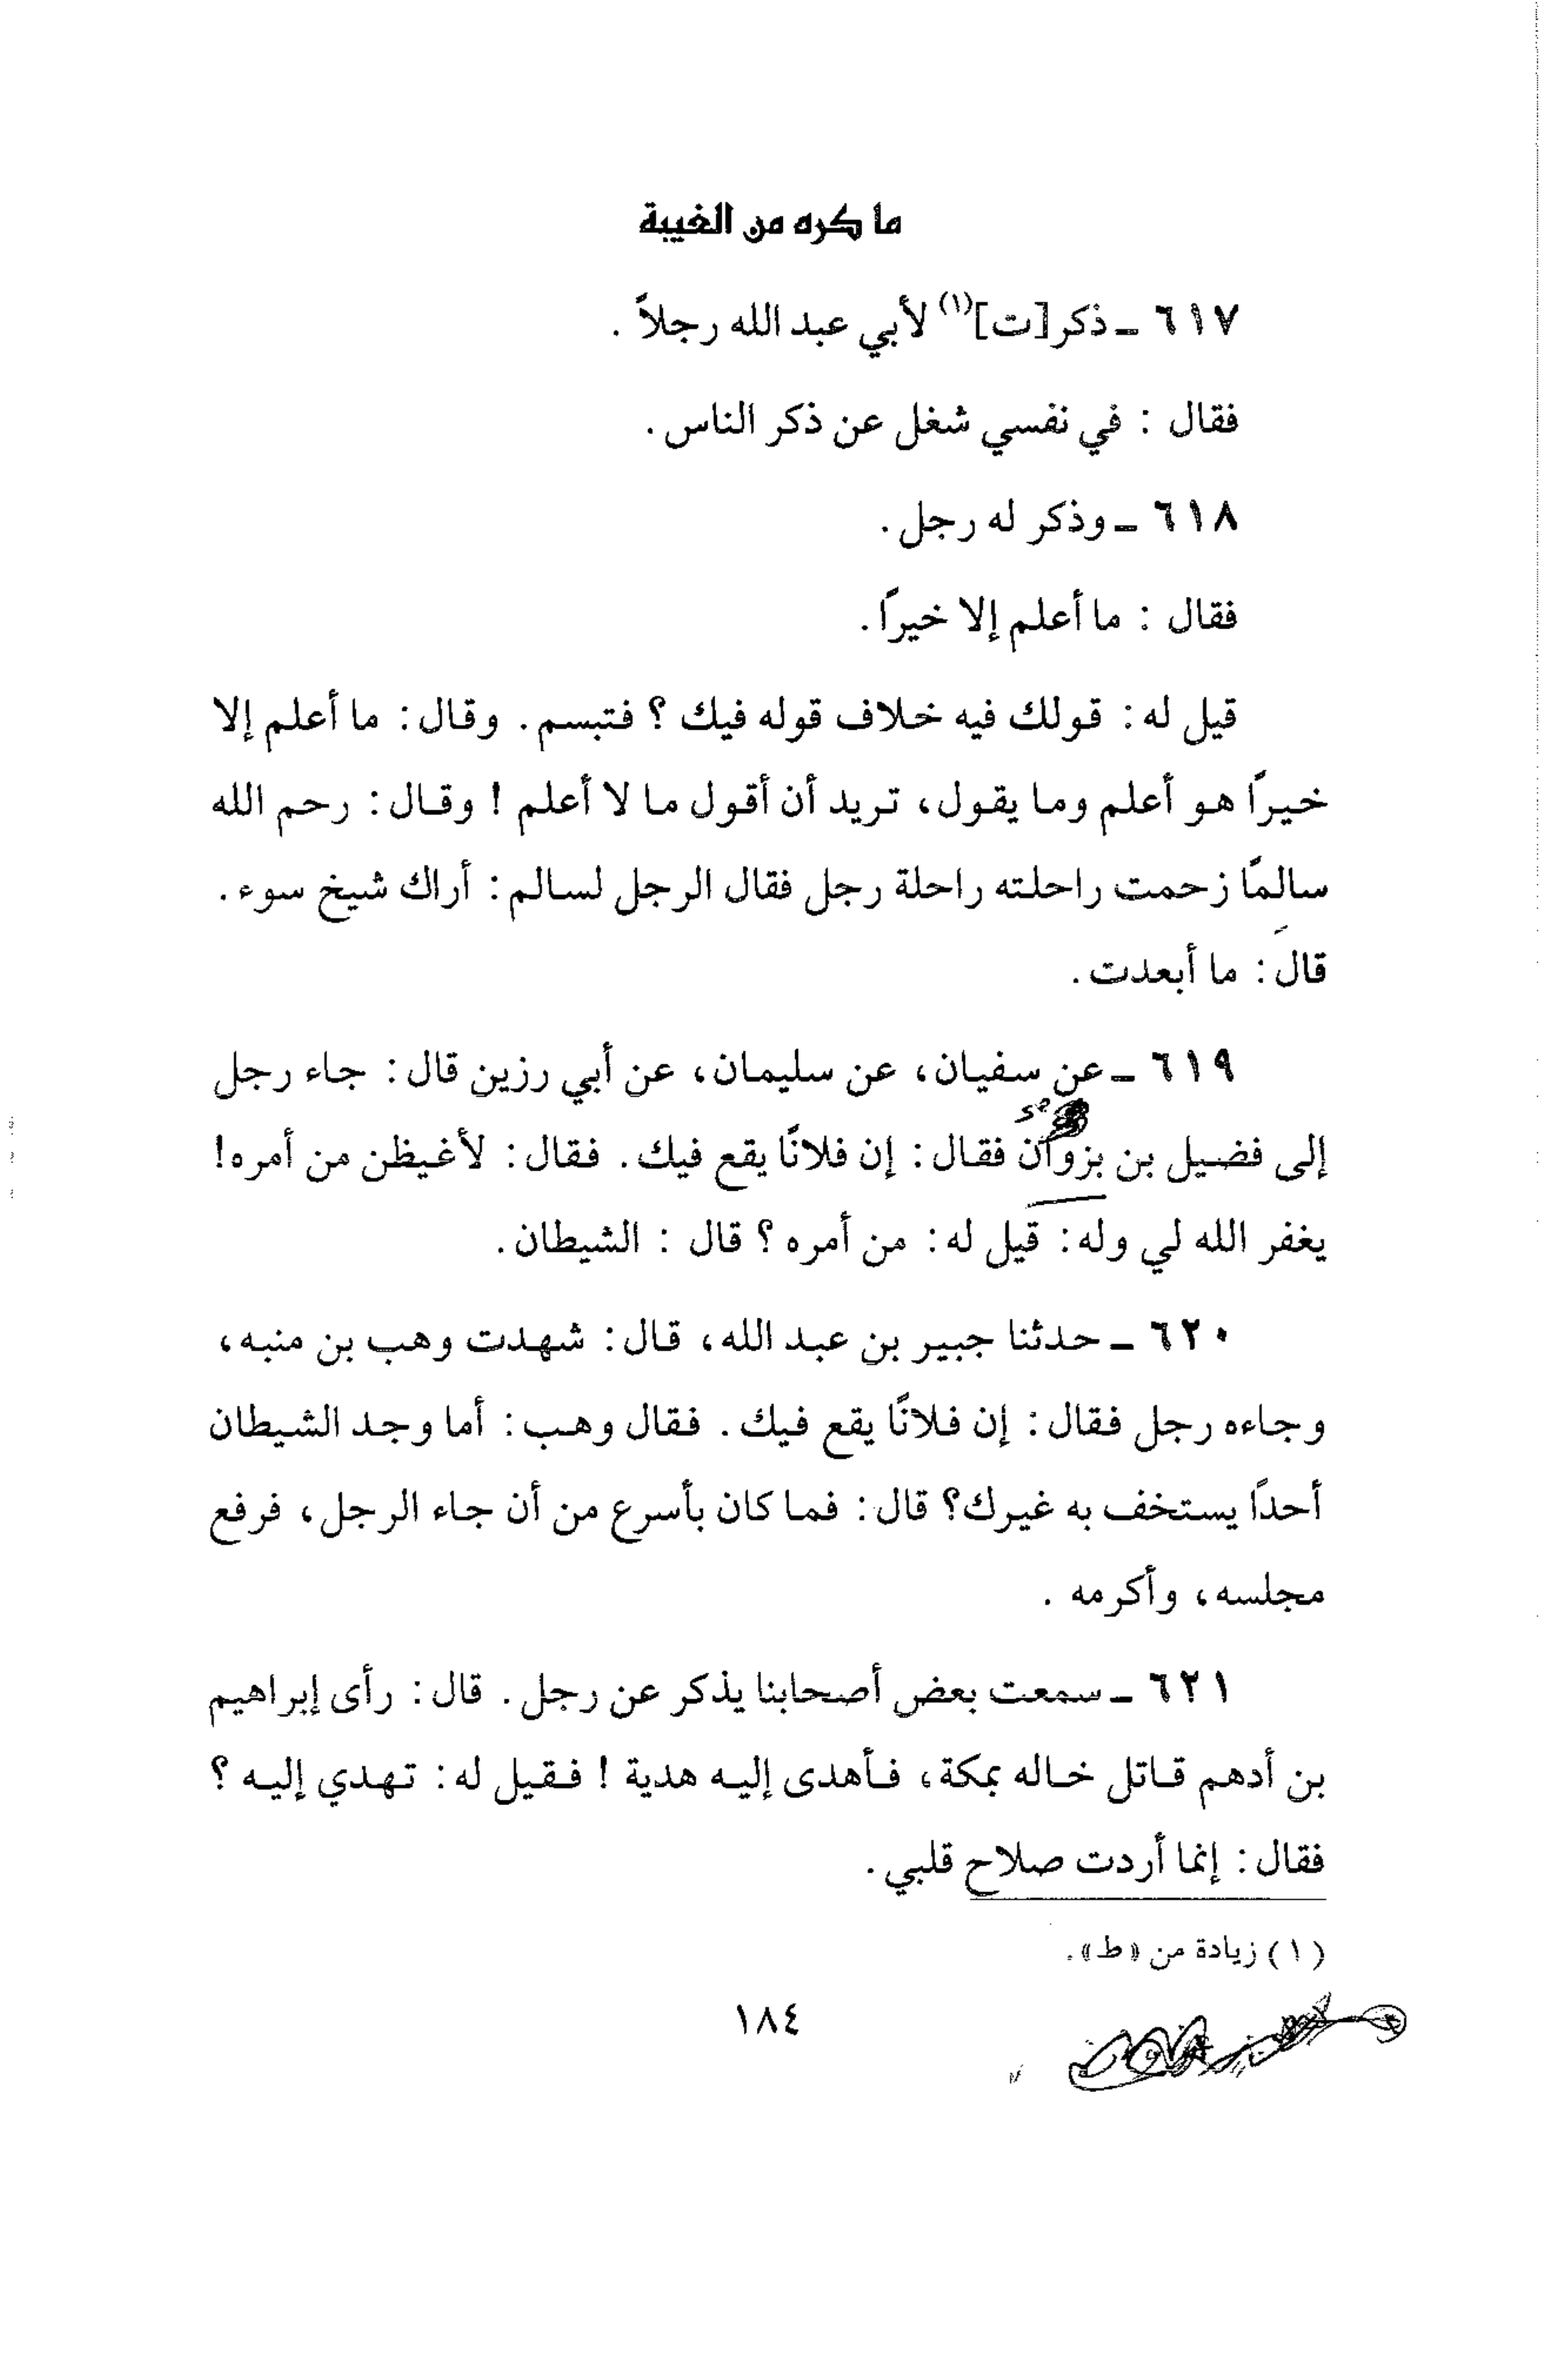 ما كره من الغيبة
٦١٧ ـ ذكر[ت](١) لأبي عبد الله رجلاً .
فقال : في نفسي شغل عن ذكر الناس .
٦١٨ ـ وذكر له رجل .
فقال : ما أعلم إلا خيرًا .
قيل له : قولك فيه خلاف قوله فيك ؟ فتبسم . وقال : ما أعلم إلا
خيرًا هو أعلم وما يقول، تريد أن أقول ما لا أعلم ! وقال : رحم الله
سالمًا زحمت راحلته راحلة رجل فقال الرجل لسالم : أراك شيخ سوء .
قال : ما أبعدت .
٦١٩ ـ عن سفيان، عن سليمان، عن أبي رزين قال : جاء رجل
إلى فضيل بن بزوان فقال : إن فلانًا يقع فيك . فقال : لأغيظن من أمره!
يغفر الله لي وله : قيل له : من أمره ؟ قال : الشيطان .
٦٢٠ ـ حدثنا جبير بن عبد الله، قال : شهدت وهب بن منبه،
وجاءه رجل فقال : إن فلانًا يقع فيك . فقال وهب : أما وجد الشيطان
أحدًا يستخف به غيرك؟ قال : فما كان بأسرع من أن جاء الرجل، فرفع
مجلسه، وأكرمه .
٦٢١ ـ سمعت بعض أصحابنا يذكر عن رجل . قال : رأى إبراهيم
بن أدهم قاتل خاله بمكة، فأهدى إليه هدية ! فقيل له : تهدي إليه ؟
فقال : إنما أردت صلاح قلبي .
(١) زيادة من «ط».
١٨٤